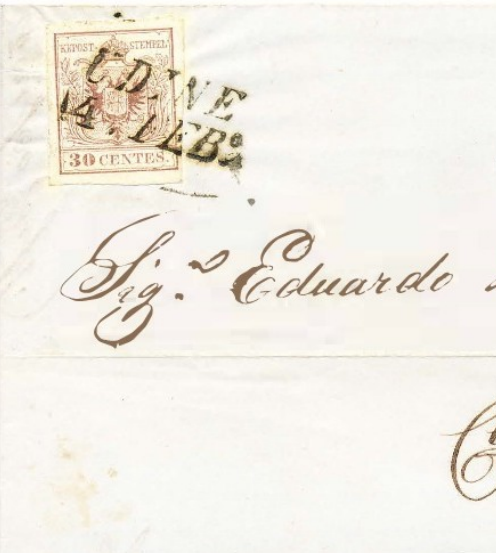 KKPOST-STEMPEL
30 CENTES.
UDINE
14. FEB.º
Sig.º Eduardo